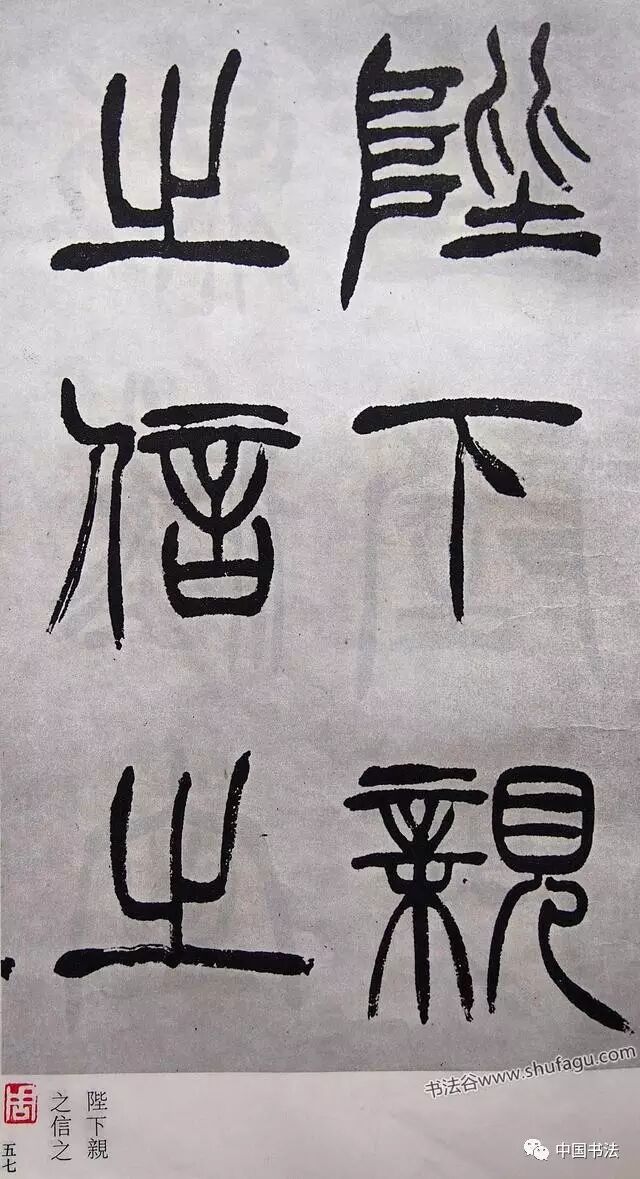 陛下親
之信之
陛下親
之信之
五七
书法谷www.shufagu.com
中国书法